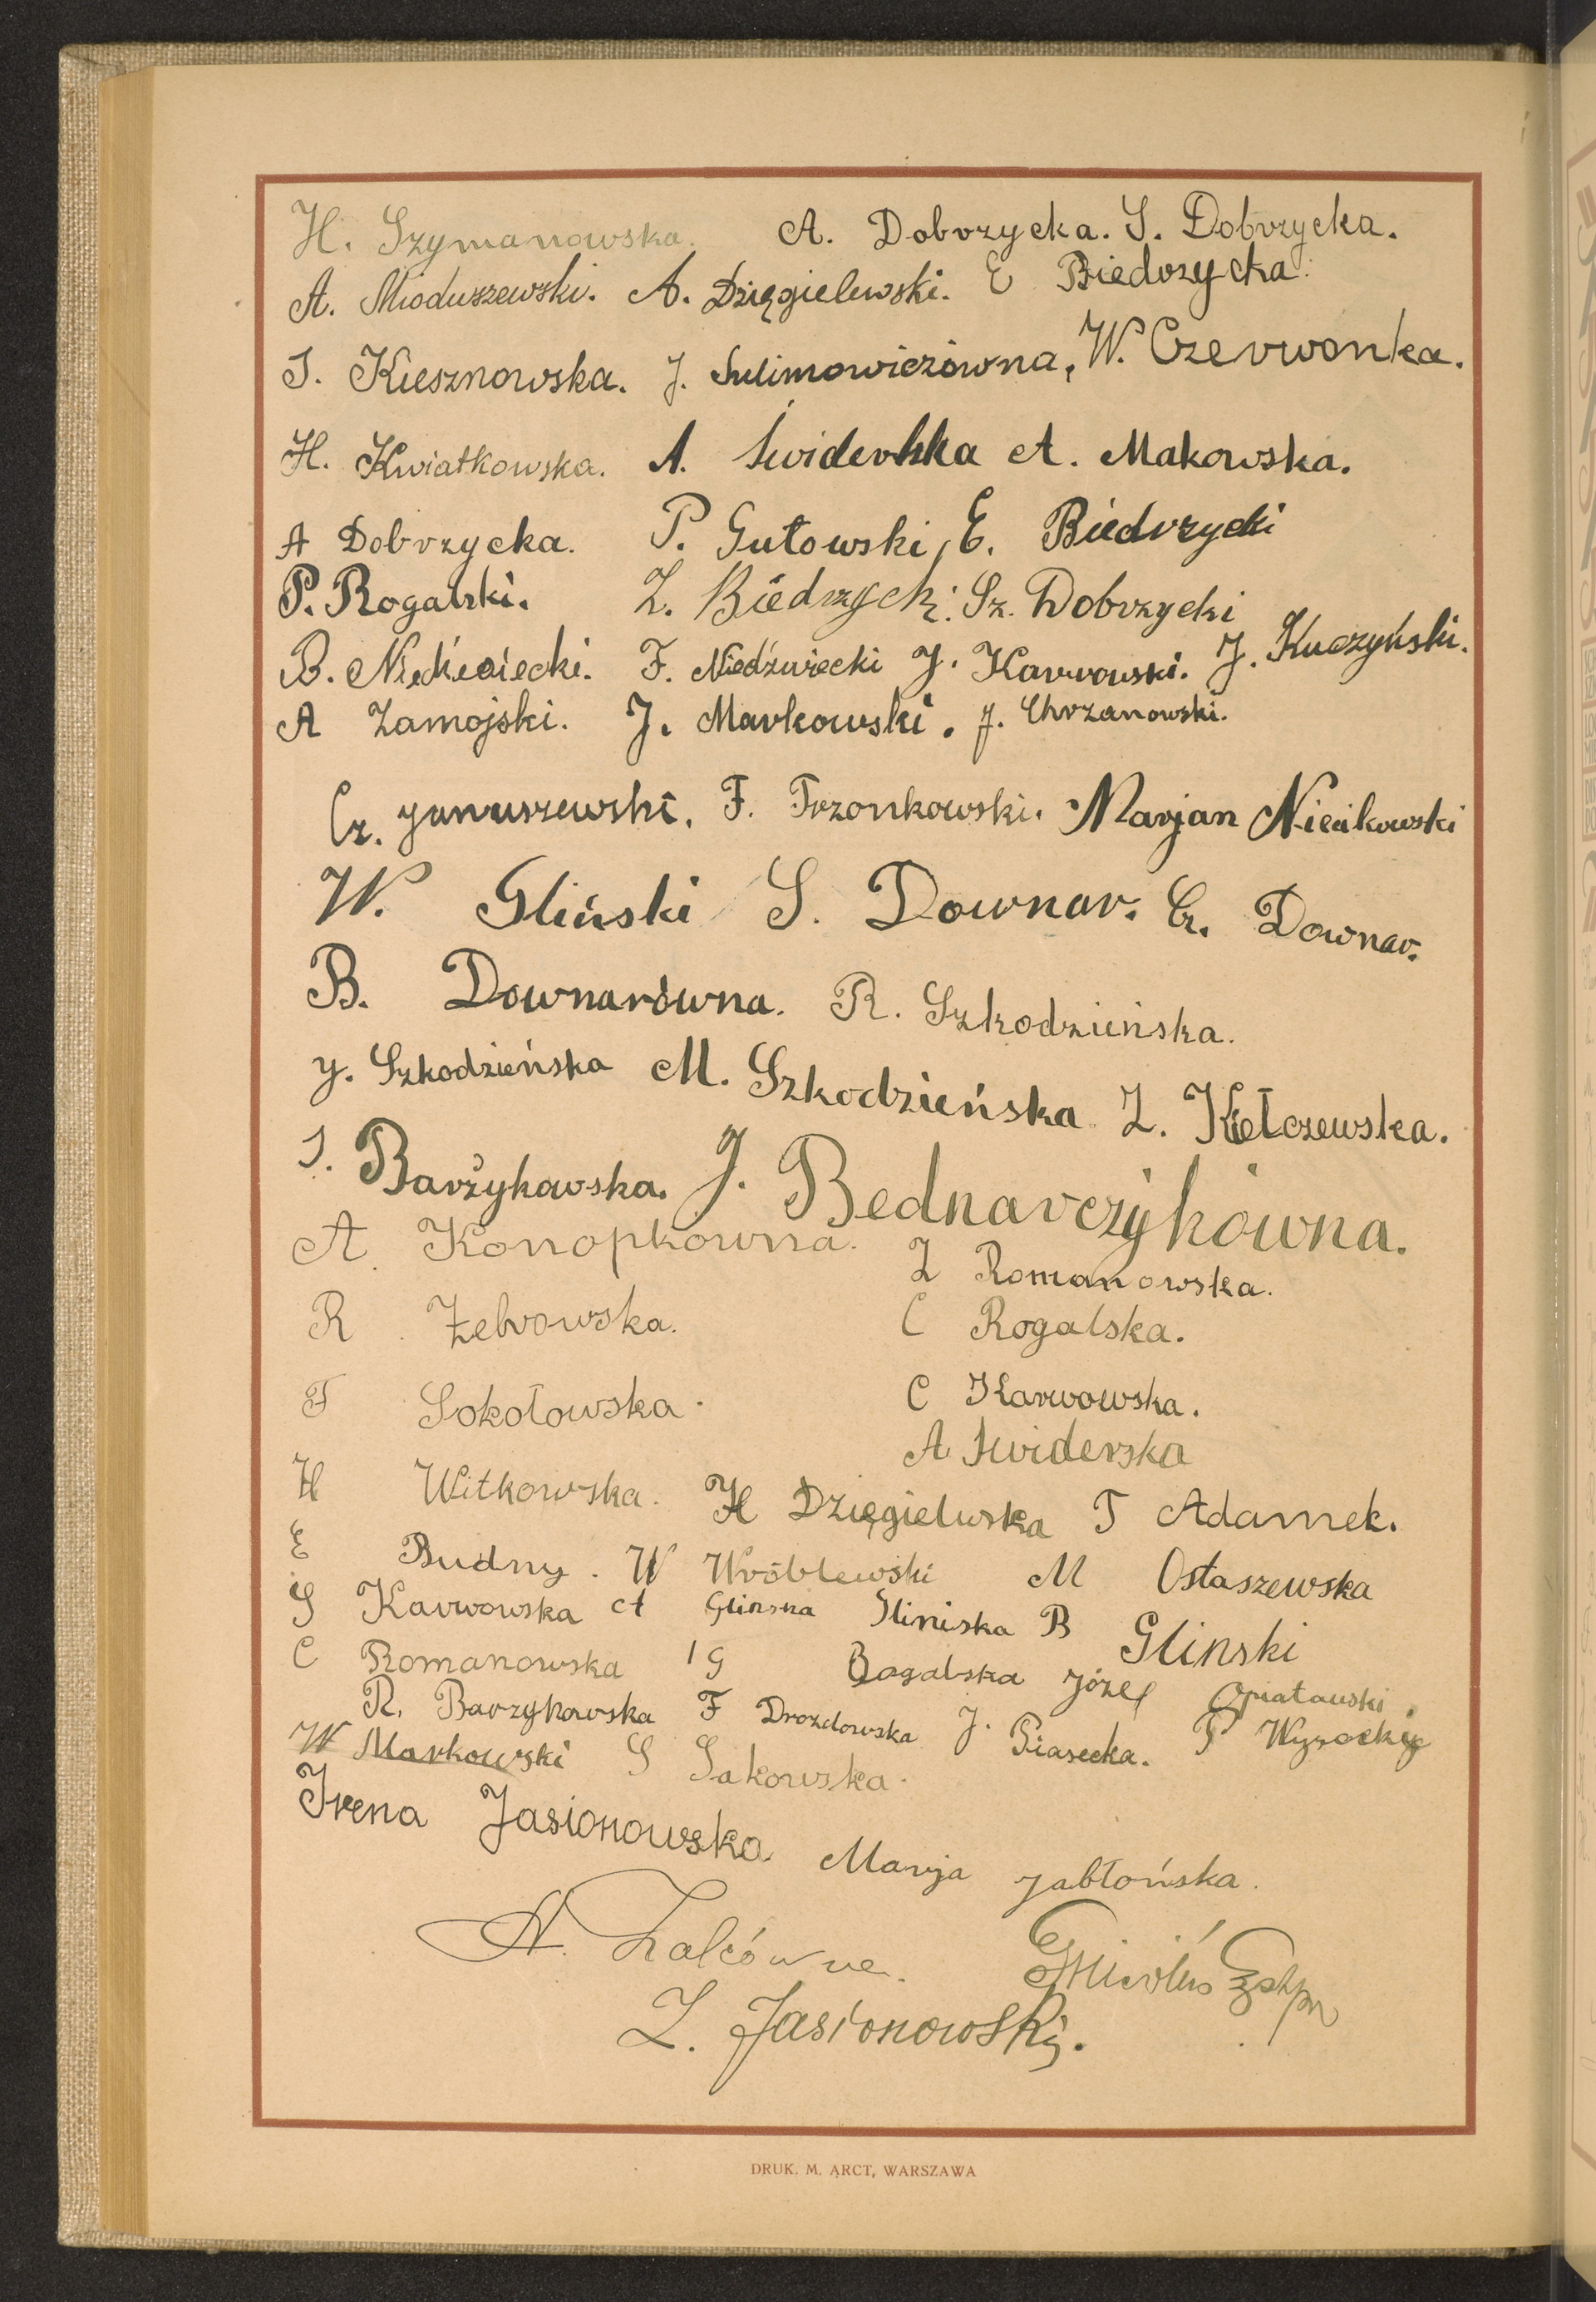 H. Szymanowska. A. Dobrzycka. S. Dobrzycka.
A. Mioduszewski. A. Dzięgielewski. E Biedrzycka.
S. Kiesznowska. J. Sulimowiczówna, W. Czerwonka.
H. Kwiatkowska. A. Świderska A. Makowska.
A Dobrzycka. P. Gutowski, E. Biedrzycki
P. Rogalski. Z. Biedrzycki. Sz. Dobrzycki
B. Niedźwiecki. F. Niedźwiecki J. Karwowski. J. Kuczyński.
A Zamojski. J. Markowski. J. Chrzanowski.
Cz. Januszewski. F. Trzonkowski. Marjan
W. Gliński S. Downar. Cz. Downar.
B. Downarówna. R. Szkodzieńska.
J. Szkodzieńska M. Szkodzieńska Z. Kiełczewska.
S. Barżykowska. J. Bednarczykówna.
A. Konopkowna.
Z Romanowska.
R. Żebrowska.
C Rogalska.
F Sokołowska.
C Karwowska.
A Świderska
H Witkowska. H Dzięgielewska T Adamek.
E Budny. W Wróblewski M Ostaszewska
S Karwowska A Glinska Gliniska B Glinski
C Romanowska G Rogalska Józef
R. Barzykowska F Drozdowska J. Piasecka. P Wysocki
W Markowski S Sakowska.
Irena Jasionowska Marja Jabłońska.
A.
Z. Jasionowski.
DRUK. M. ARCT, WARSZAWA